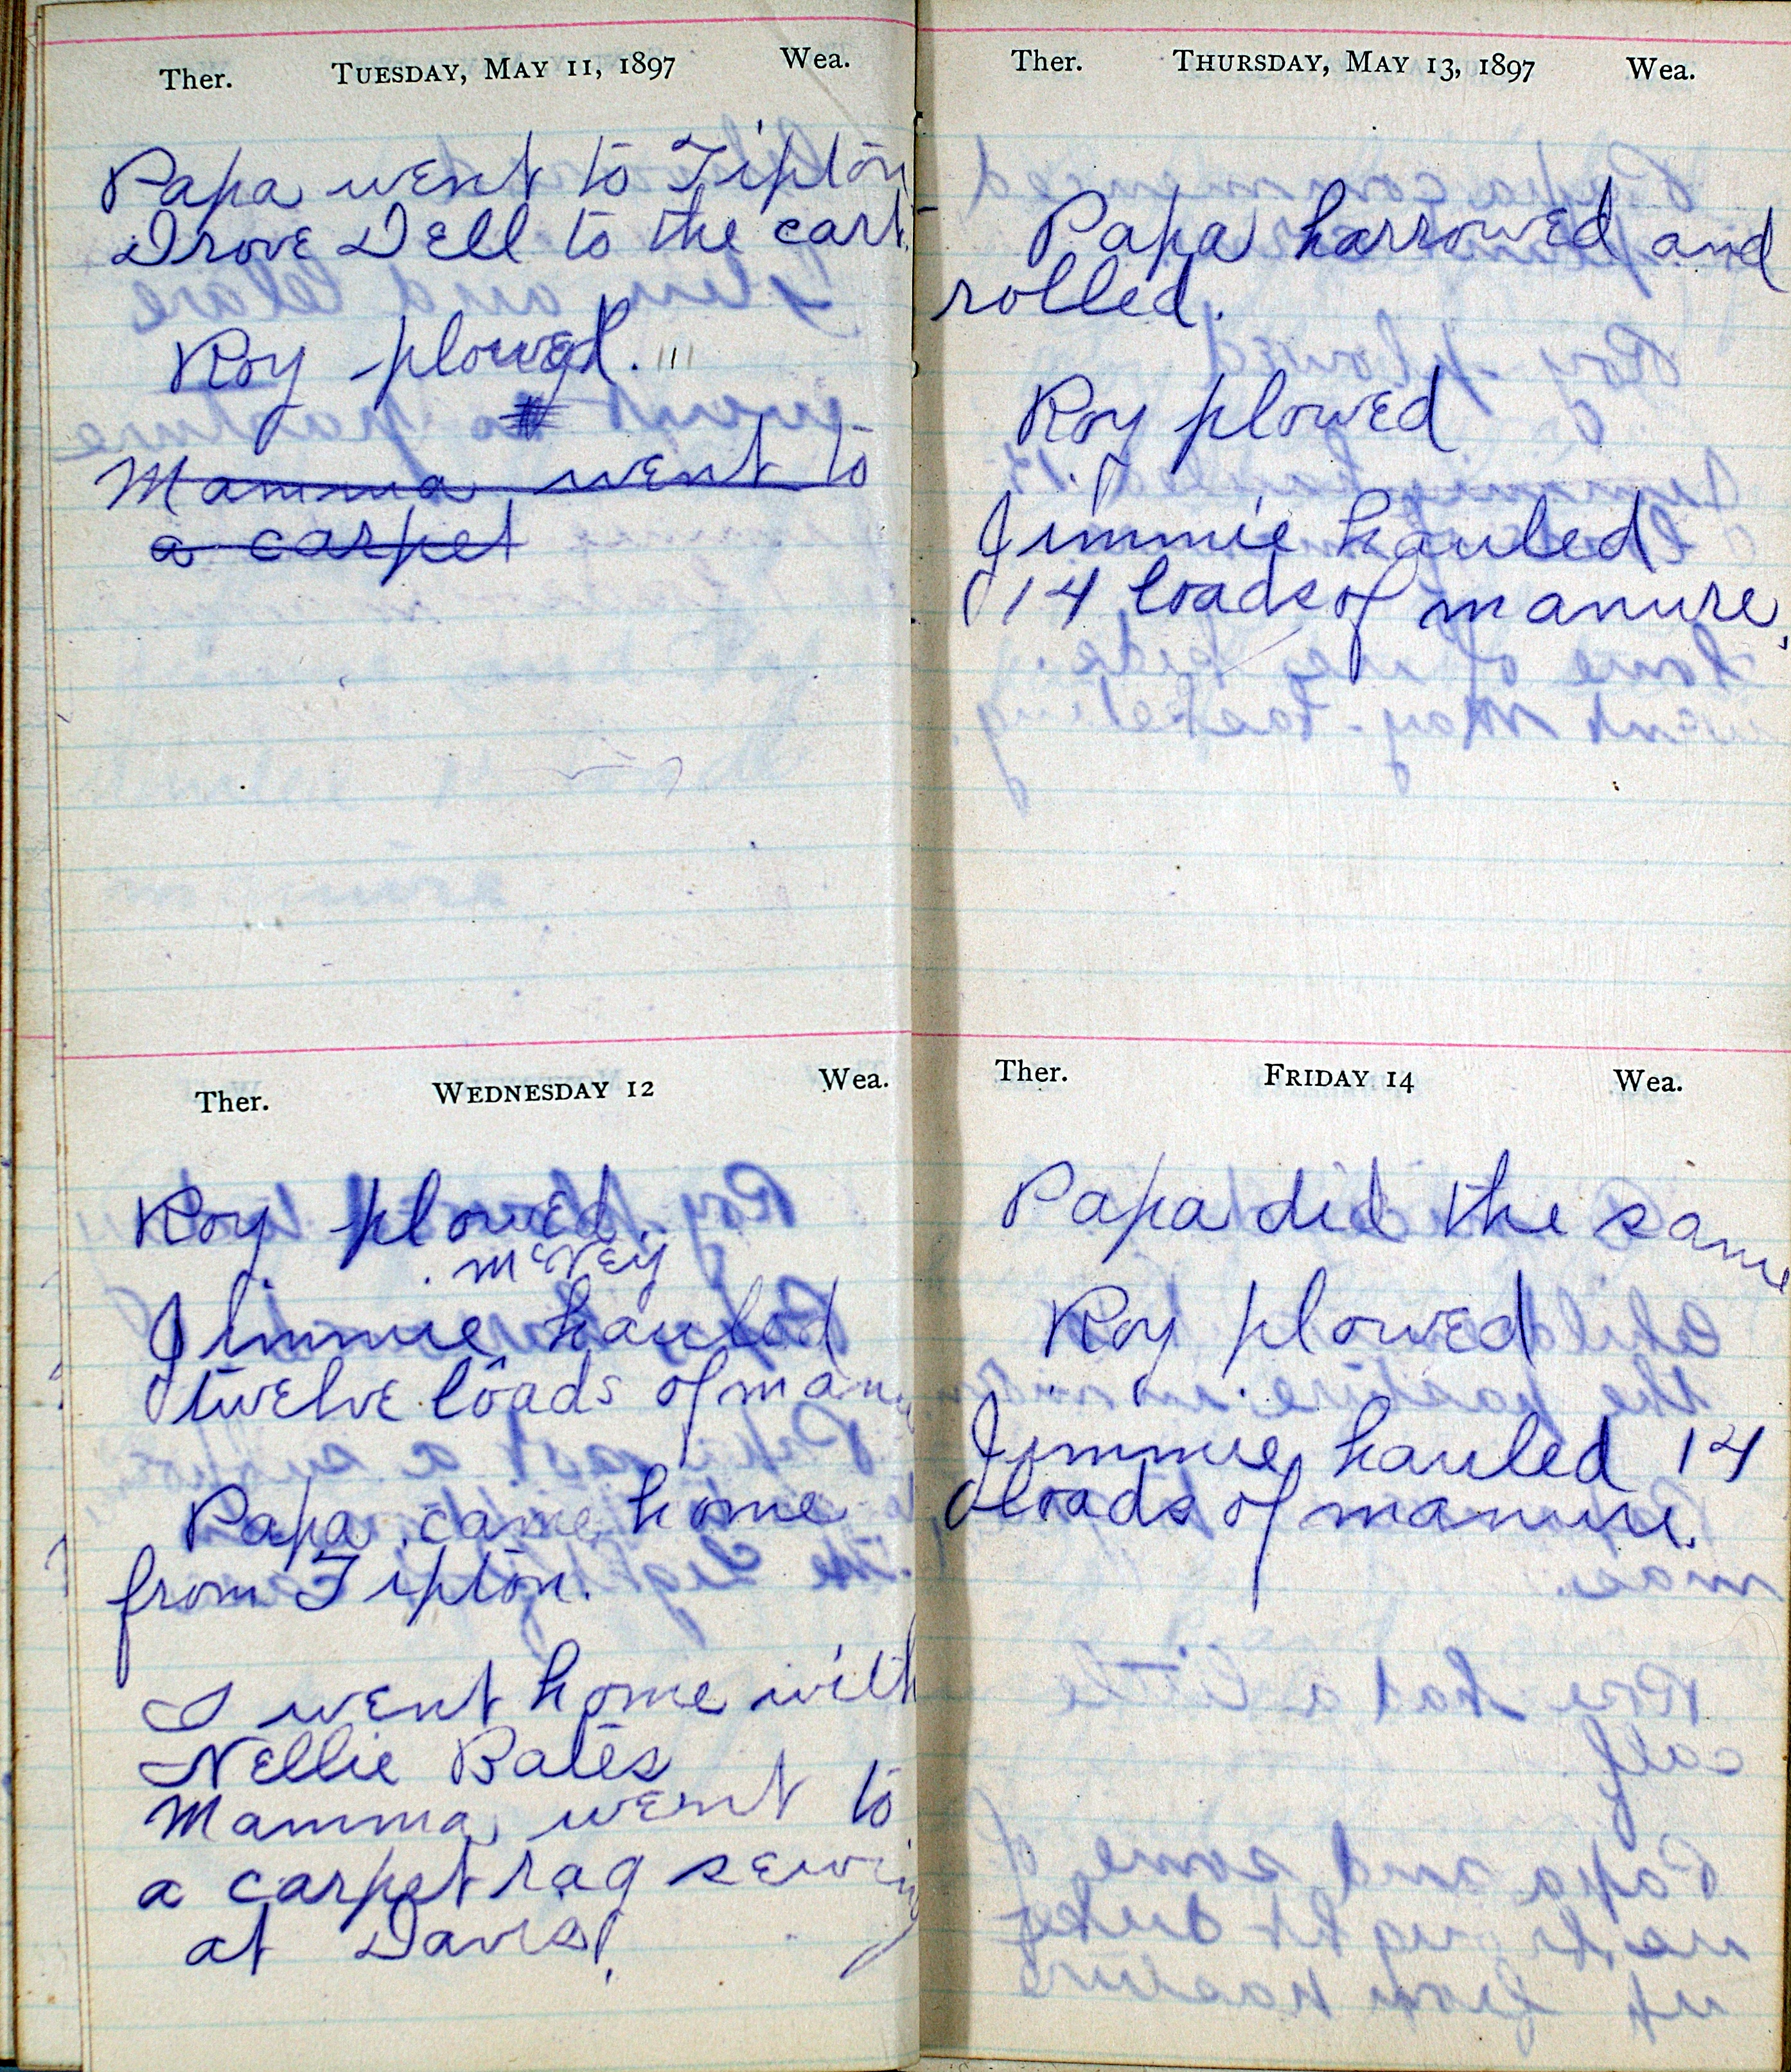 Ther. TUESDAY, MAY 11, 1897 Wea.
Papa went to Tipton
Drove Dell to the cart.
Roy plowed.
Mamma went to
a carpet
Ther. WEDNESDAY 12 Wea.
Roy plowed.
McVey
Jimmie hauled
twelve loads of manu
Papa came home
from Tipton.
I went home with
Nellie Bates
Mamma went to
a carpet rag sewing
at Davis'.
Ther. THURSDAY, MAY 13, 1897 Wea.
Papa harrowed and
rolled.
Roy plowed
Jimmie hauled
14 loads of manure.
Ther. FRIDAY 14 Wea.
Papa did the same
Roy plowed
Jimmie hauled 14
loads of manure.